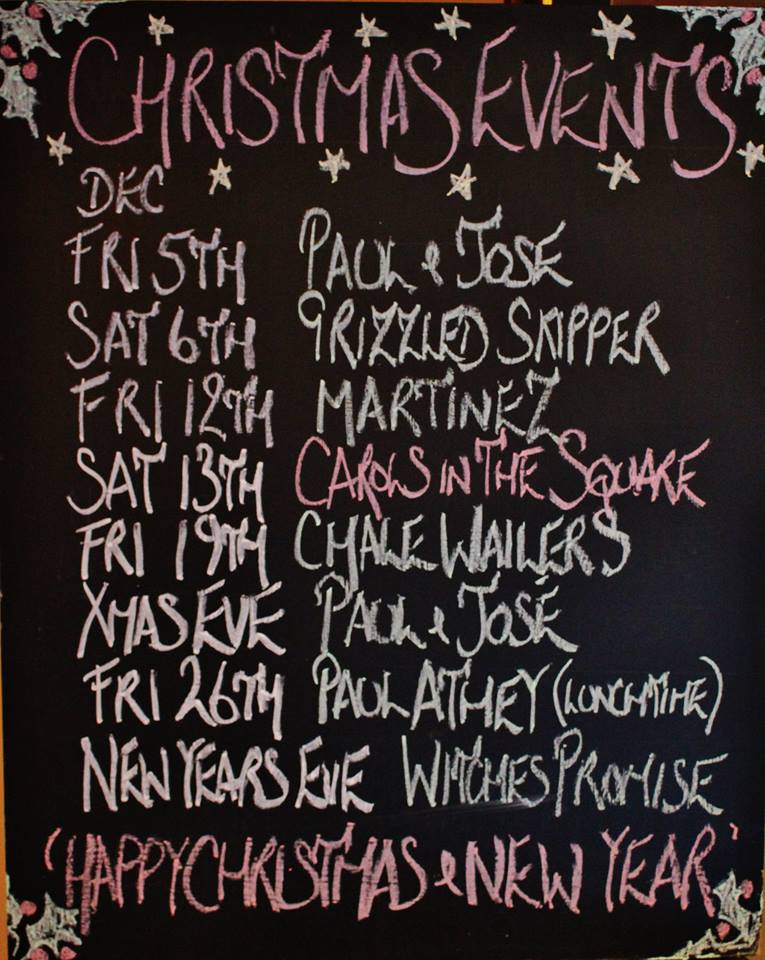 CHRISTMAS EVENTS
DEC
FRI 5TH PAUL & JOSÉ
SAT 6TH GRIZZLED SKIPPER
FRI 12TH MARTINEZ
SAT 13TH CAROLS IN THE SQUARE
FRI 19TH CHALE WAILERS
XMAS EVE PAUL & JOSÉ
FRI 26TH PAUL ATHEY (LUNCHTIME)
NEW YEARS EVE WITCHES PROMISE
'HAPPY CHRISTMAS & NEW YEAR'